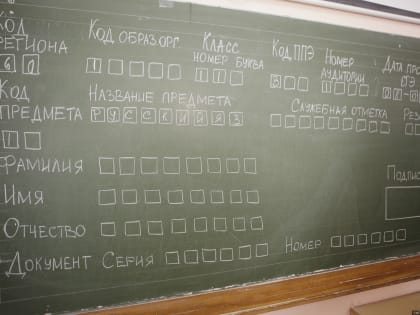 Код региона 60
Код образ.орг. 1
Класс
номер буква 11
Код ППЭ 3
Номер аудитории 1
Дата про
Код предмета 1
Название предмета
русский яз
Служебная отметка
Рез
Фамилия
Имя
Отчество
Документ Серия Номер
Подпис